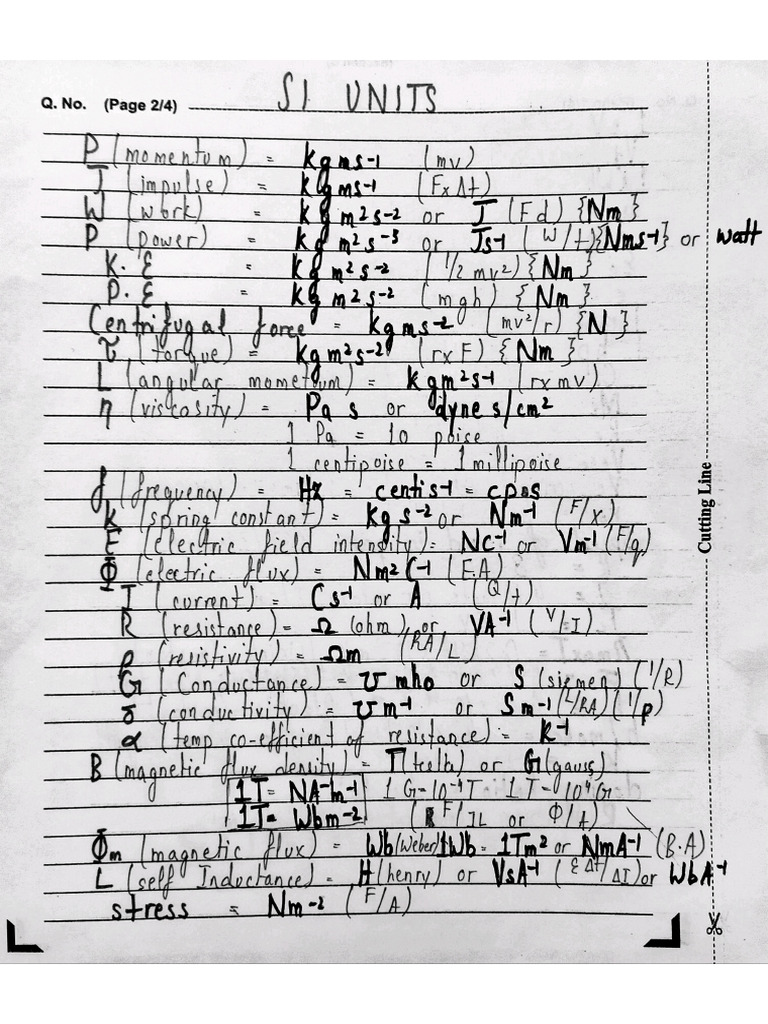 Q. No. (Page 2/4) SI UNITS
P (momentum) = kgms-1 (mv)
J (impulse) = kgms-1 (F×Δt)
W (work) = kgm2s-2 or J (Fd) {Nm}
P (power) = kgm2s-3 or Js-1 (W/t) {Nms-1} or watt
K.E = kgm2s-2 (1/2 mv2) {Nm}
P.E = kgm2s-2 (mgh) {Nm}
Centrifugal force = kgms-2 (mv2/r) {N}
τ (torque) = kgm2s-2 (r×F) {Nm}
L (angular mometum) = kgm2s-1 (r×mv)
η (viscosity) = Pa s or dyne s/cm2
1 Pa = 10 poise
1 centipoise = 1 millipoise
f (frequency) = Hz = centis-1 =
K (spring constant) = Kgs-2 or Nm-1 (F/x)
E (electric field intensity) = NC-1 or Vm-1 (F/q)
Φ (electric flux) = Nm2C-1 (E.A)
I (current) = Cs-1 or A (Q/t)
R (resistance) = Ω (ohm) or VA-1 (V/I)
ρ (resistivity) = Ωm (RA/L)
G (Conductance) = ℧ mho or S (siemen) (1/R)
σ (conductivity) = ℧m-1 or Sm-1 (L/RA) (1/ρ)
α (temp co-efficient of resistance) = K-1
B (magnetic flux density) = T(tesla) or G(gauss)
1T = NA-1m-1 1 G=10-4T 1 T=104G
1T = Wbm-2 (F/IL or Φ/A)
Φm (magnetic flux) = Wb(Weber) 1Wb = 1Tm2 or NmA-1 (B.A)
L (self Inductance) = H (henry) or VsA-1 (εΔt/ΔI) or WbA-1
stress = Nm-2 (F/A)
Cutting Line